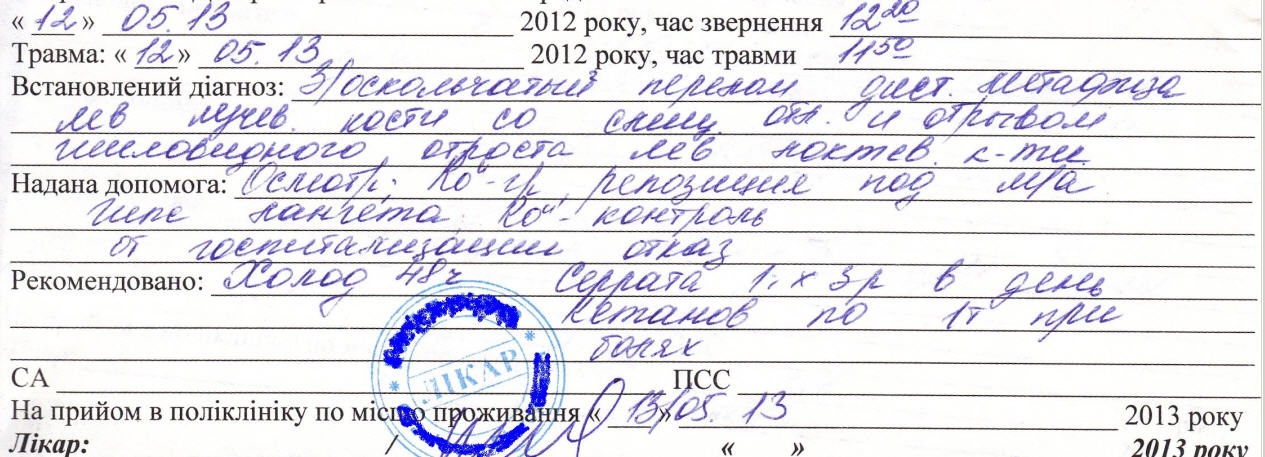 « 12 » 05.13 2012 року, час звернення 12 20
Травма: « 12 » 05.13 2012 року, час травми 11 50
Встановлений діагноз: З/оскольчатый перелом дист. метафиза
лев лучев. кости со смещ. отл. и отрывом
шиловидного отроста лев локтев. к-ти
Надана допомога: Осмотр, Ro-гр, репозиция под м/а
гипс лангета. Ro - контроль
от госпитализации отказ
Рекомендовано: Холод 48ч Серрата 1т х 3р в день
Кетанов по 1т при
болях
ЛІКАР
СА ПСС
На прийом в поліклініку по місцю проживання « 13 » 05. 13 2013 року
Лікар: / « » 2013 року